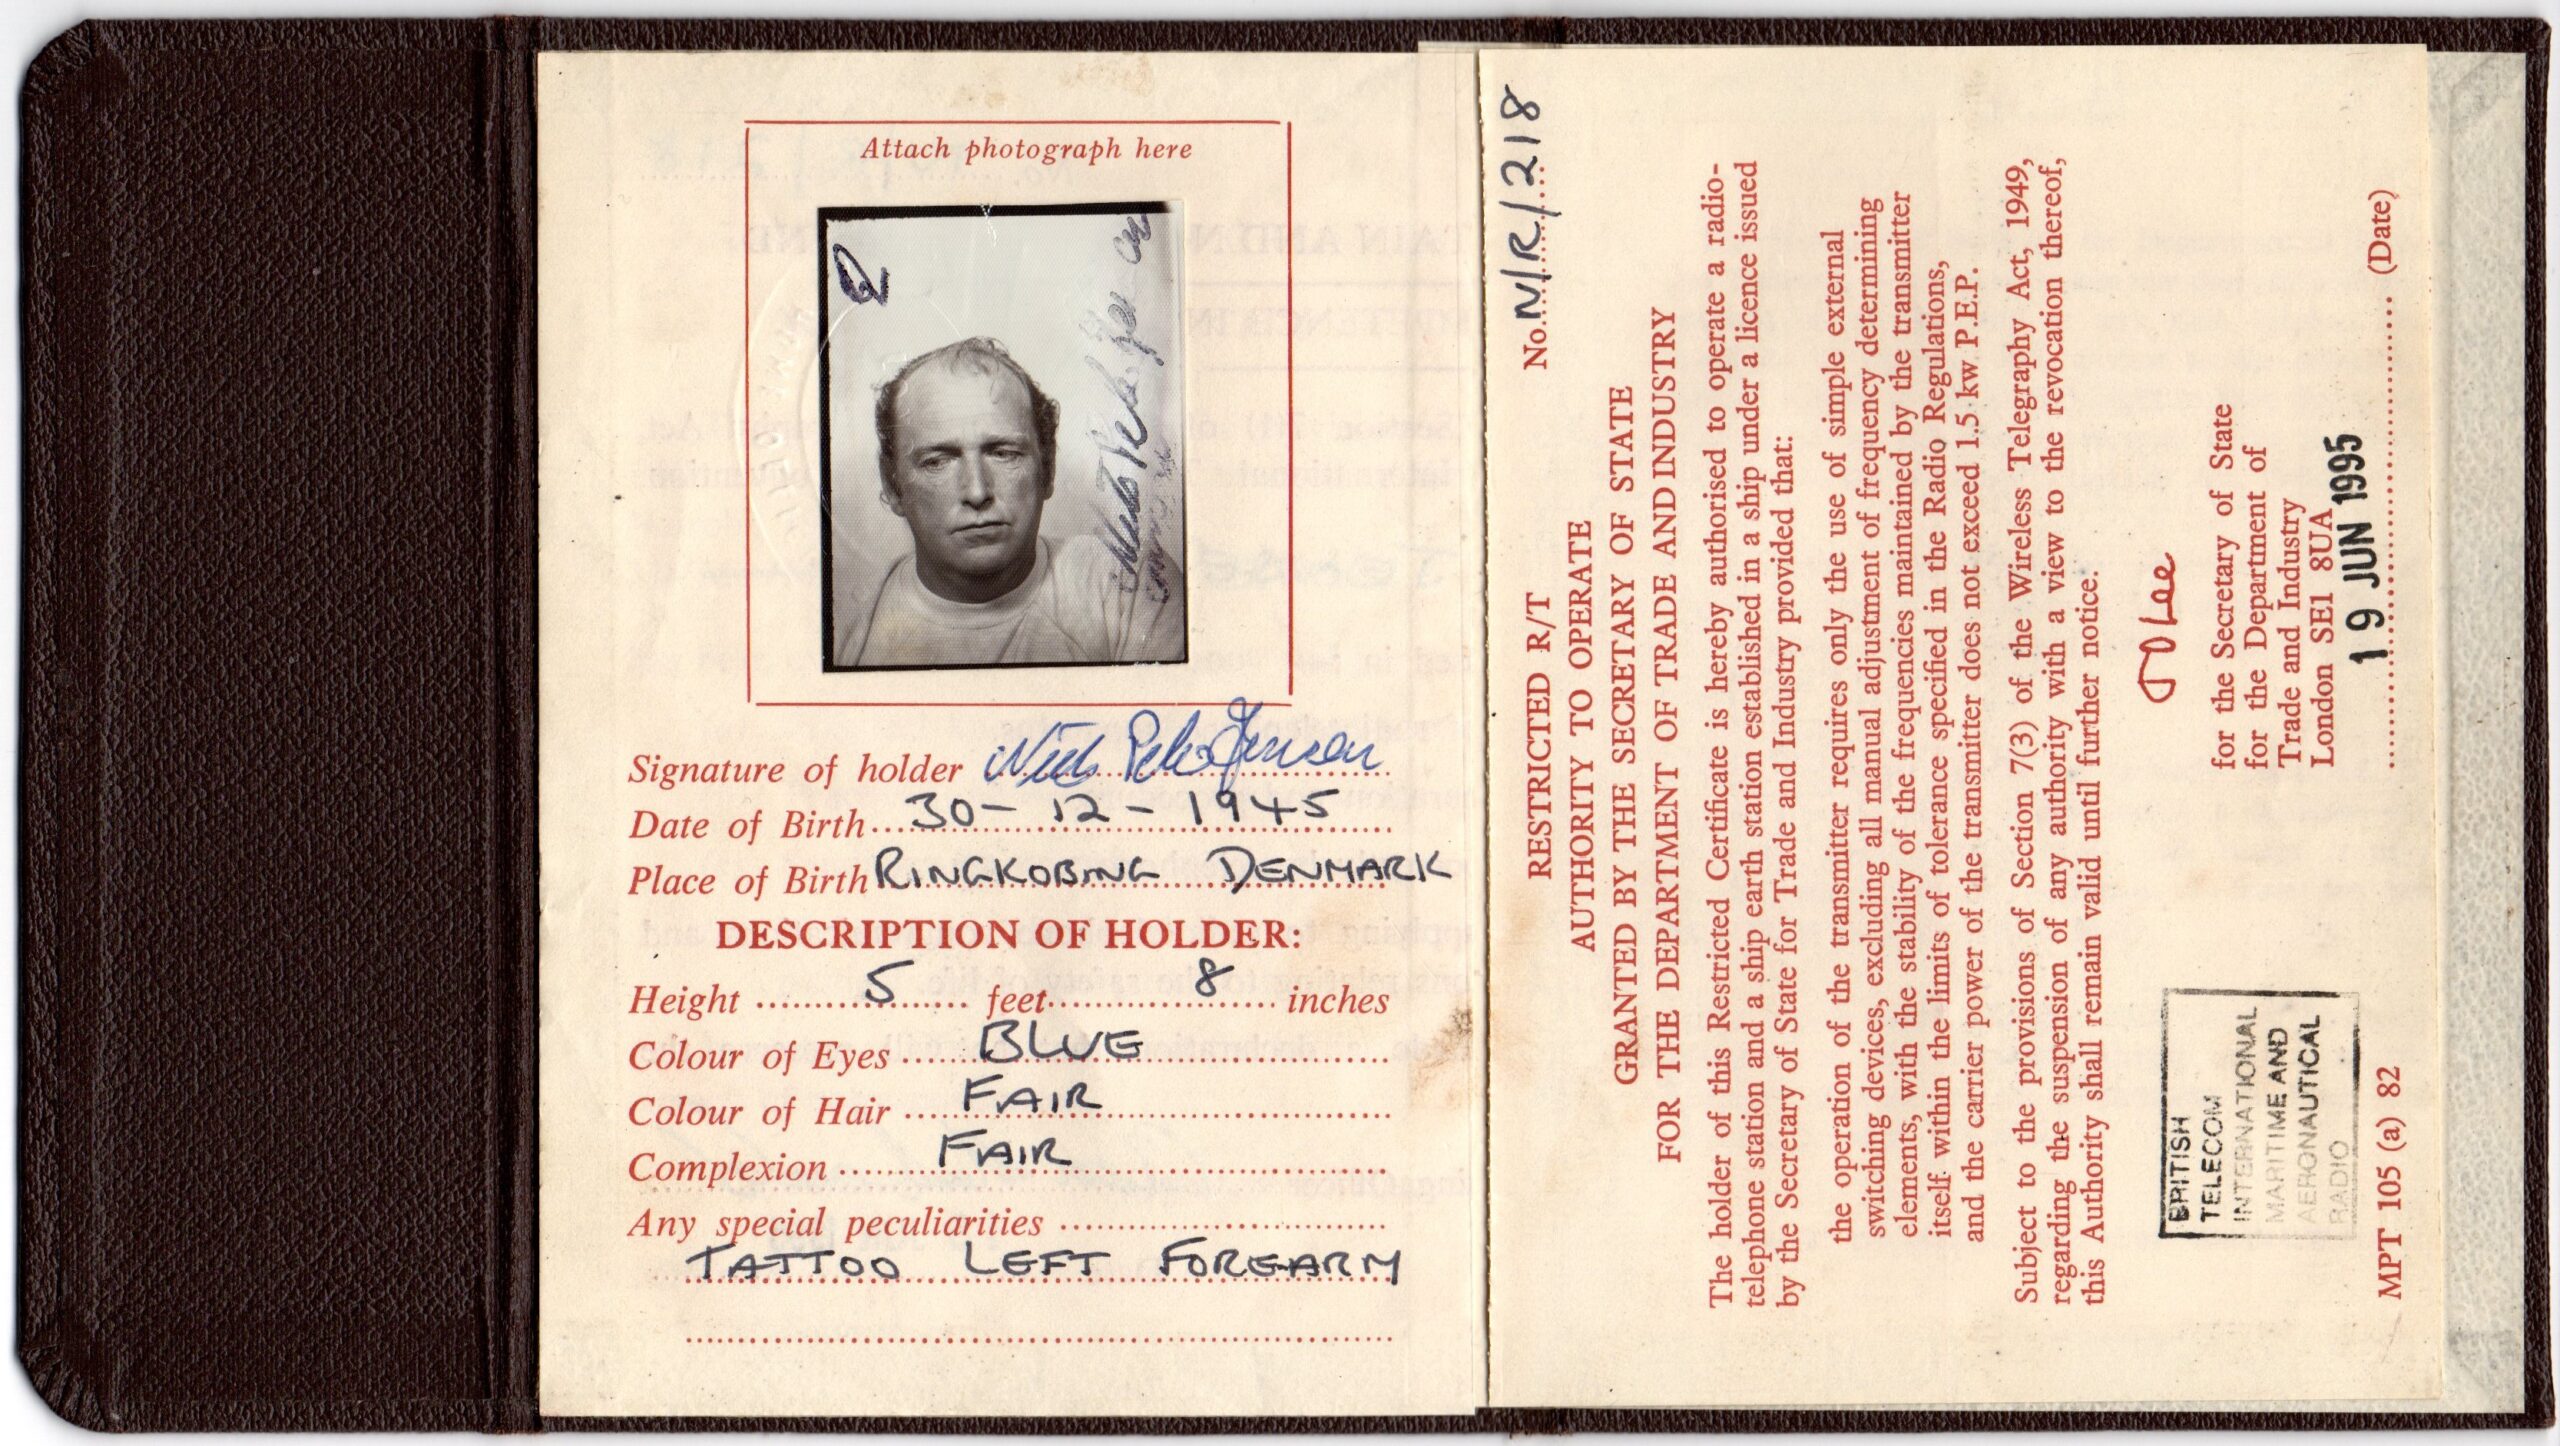 Attach photograph here
Signature of holder Niels Peter Jensen
Date of Birth 30-12-1945
Place of Birth RINGKOBING DENMARK
DESCRIPTION OF HOLDER:
Height 5 feet 8 inches
Colour of Eyes BLUE
Colour of Hair FAIR
Complexion FAIR
Any special peculiarities
TATTOO LEFT FOREARM
No. N/R/218
RESTRICTED R/T
AUTHORITY TO OPERATE
GRANTED BY THE SECRETARY OF STATE
FOR THE DEPARTMENT OF TRADE AND INDUSTRY
The holder of this Restricted Certificate is hereby authorised to operate a radio-
telephone station and a ship earth station established in a ship under a licence issued
by the Secretary of State for Trade and Industry provided that:
the operation of the transmitter requires only the use of simple external
switching devices, excluding all manual adjustment of frequency determining
elements, with the stability of the frequencies maintained by the transmitter
itself within the limits of tolerance specified in the Radio Regulations,
and the carrier power of the transmitter does not exceed 1.5 kw P.E.P.
Subject to the provisions of Section 7(3) of the Wireless Telegraphy Act, 1949,
regarding the suspension of any authority with a view to the revocation thereof,
this Authority shall remain valid until further notice.
for the Secretary of State
for the Department of
Trade and Industry
London SE1 8UA
19 JUN 1995
(Date)
BRITISH
TELECOM
INTERNATIONAL
MARITIME AND
AERONAUTICAL
RADIO
MPT 105 (a) 82